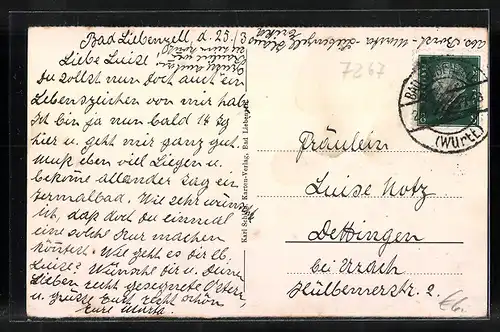 Bad Liebenzell, d. 25./3
Liebe Luise!
Du sollst nun doch auch ein
Lebenszeichen von mir haben
ich bin ja nun bald 14 Tg
hier u. geht mir ganz gut.
Muß eben viel Liegen u.
bekome allander Tag ein
Termalbad. Wie sehr wünsch
ich, daß doch du einmal
eine solche Kur machen
könntest. Wie geht es dir lb.
Luise? Wünsche dir u. Deinen
Lieben recht gesegnete Ostern,
u. grüße Euch recht schön
Eure Marta.
abs. Marta Liebenzell
7267
Karten-Verlag, Bad Liebenzell
BAD
(Württ.)
Fräulein
Luise Notz
Dettingen
bei Urach
Hülbenerstr. 2.